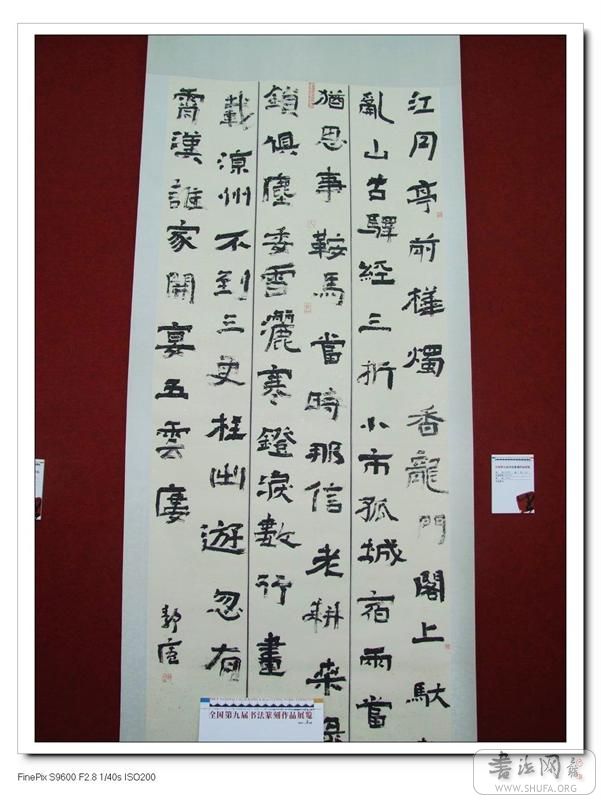 江月亭前樺燭香龍門閣上馱
亂山古驛經三折小市孤城宿兩當
猶思事鞍馬當時那信老耕桑綠
鎖俱塵委雪灑寒鐙淚數行畫
載涼州不到三更枉出遊忽有
霄漢誰家開宴五雲樓
全国第九届书法篆刻作品展览
FinePix S9600 F2.8 1/40s ISO200
书法网
WWW.SHUFA.ORG